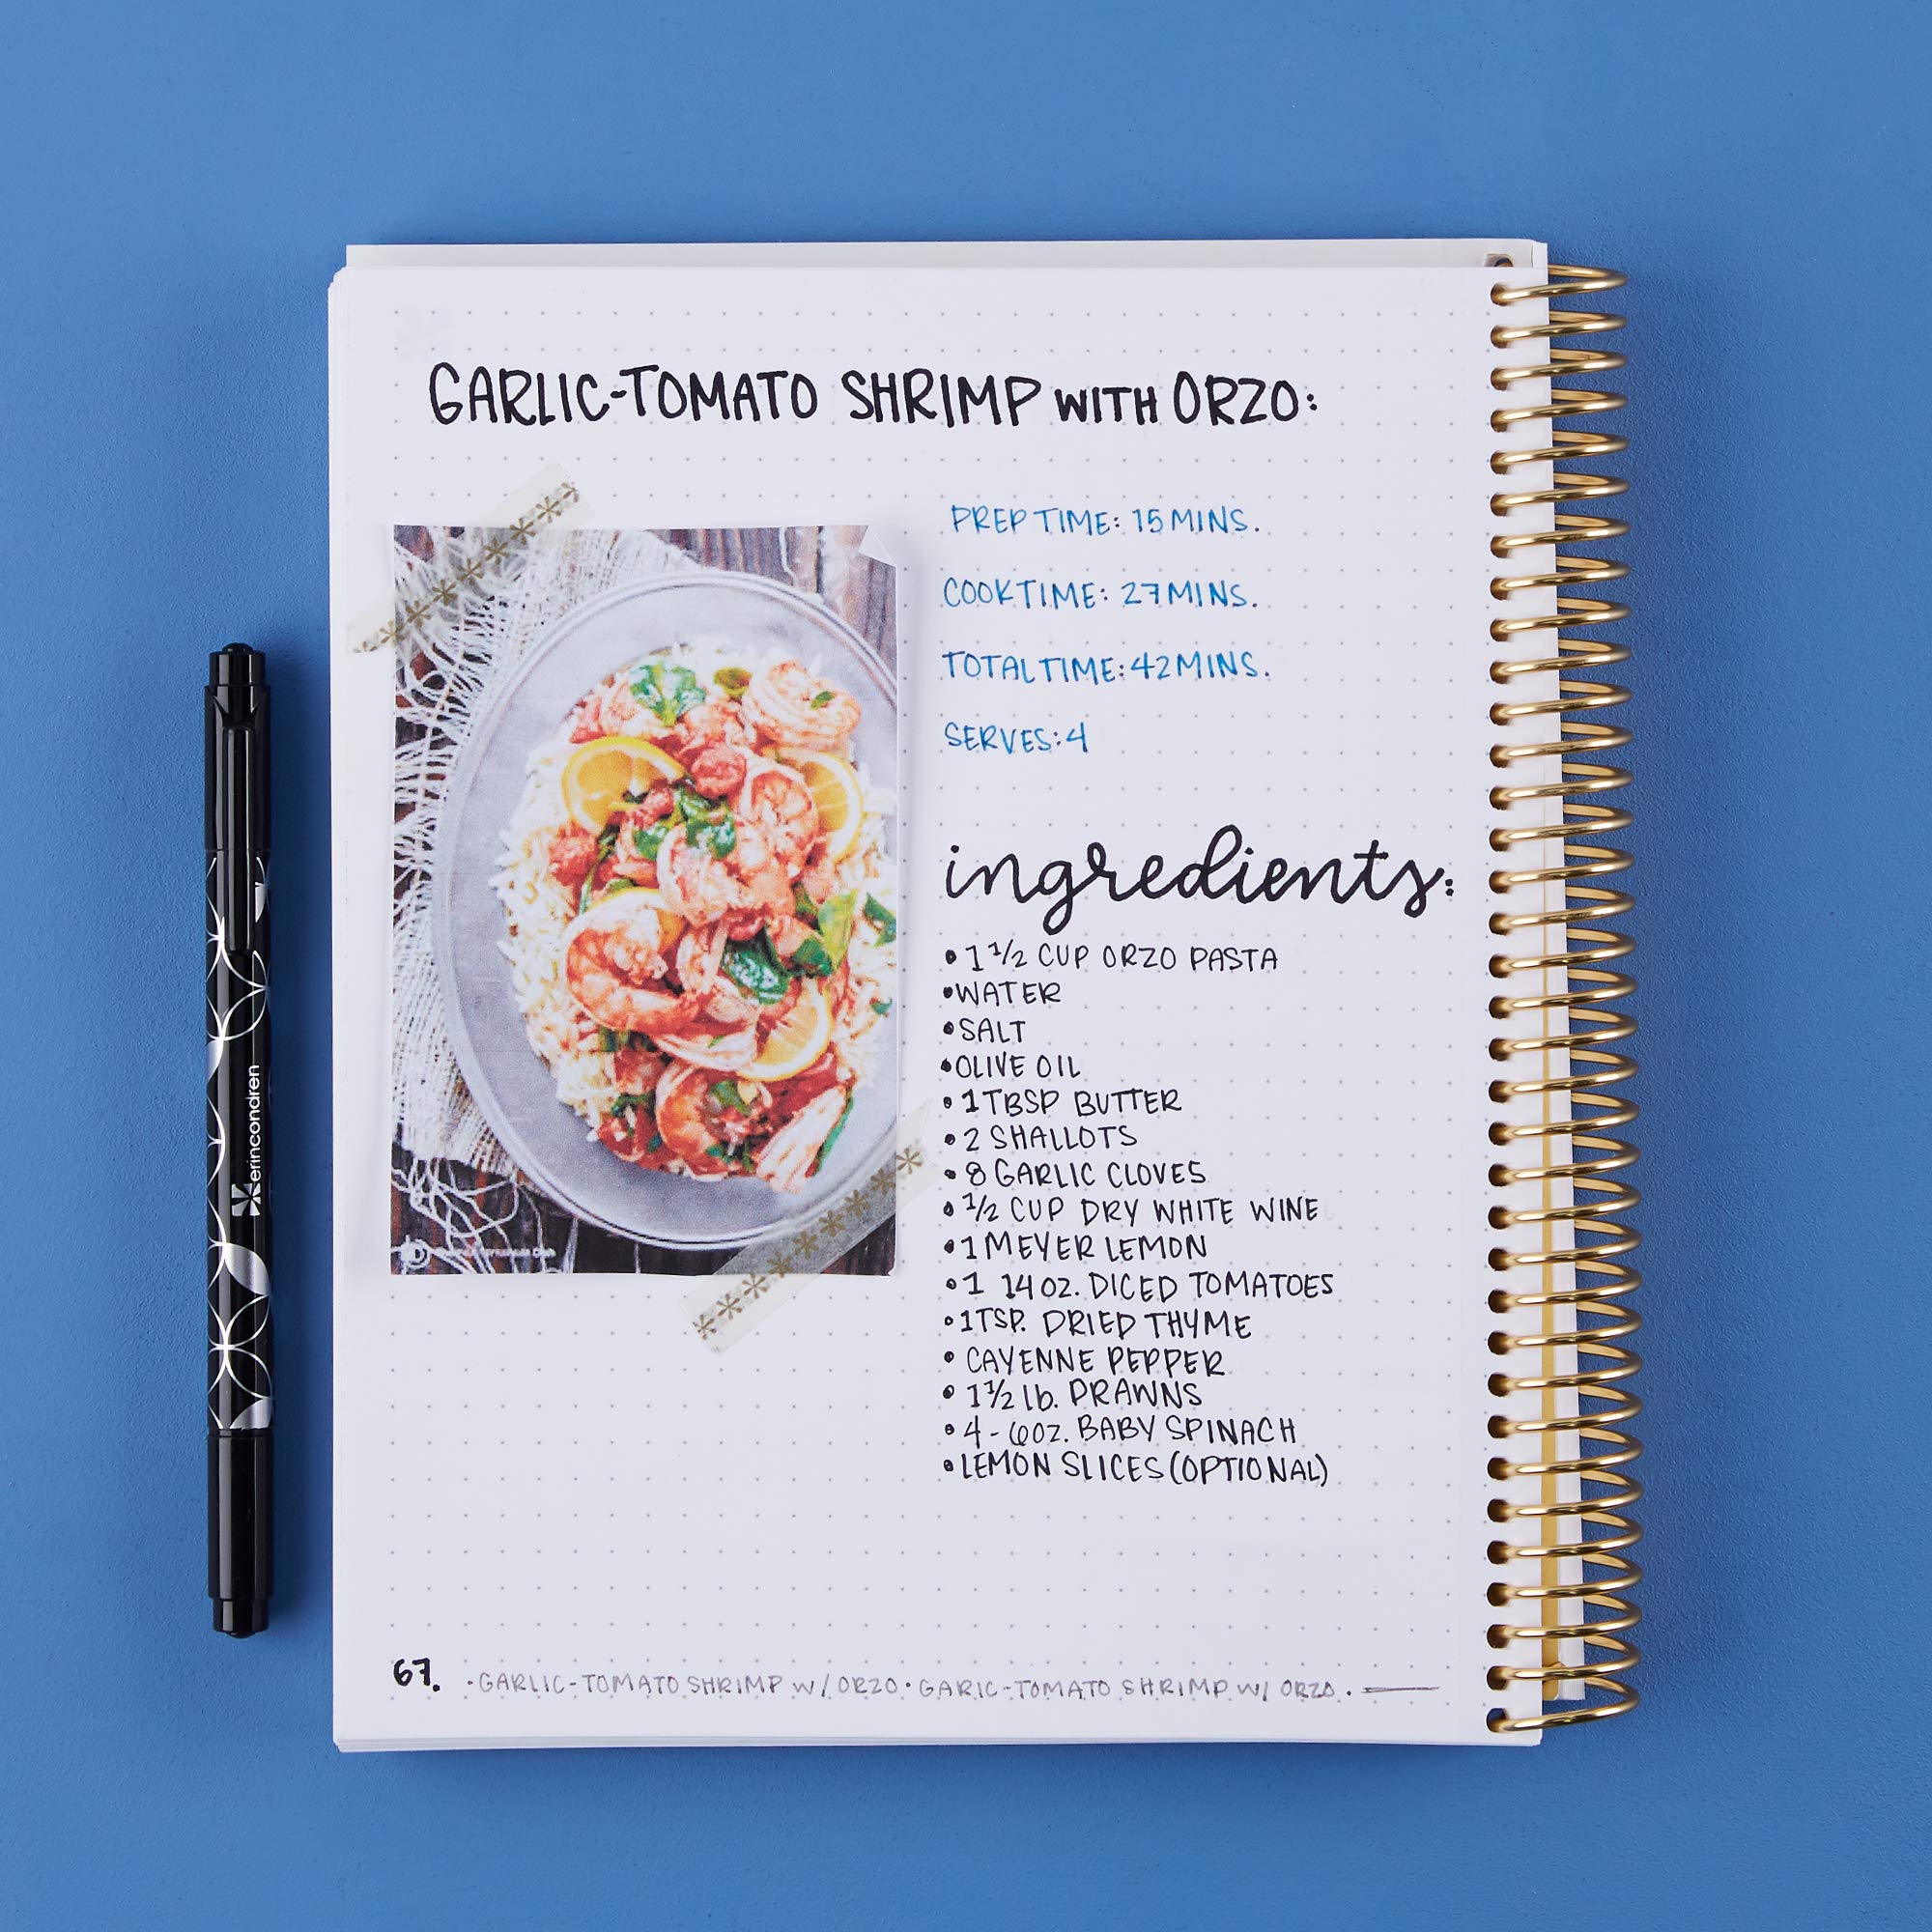 GARLIC-TOMATO SHRIMP WITH ORZO:
PREP TIME: 15 MINS.
COOK TIME: 27 MINS.
TOTAL TIME: 42 MINS.
SERVES: 4
ingredients:
• 1 1/2 CUP ORZO PASTA
• WATER
• SALT
• OLIVE OIL
• 1 TBSP BUTTER
• 2 SHALLOTS
• 8 GARLIC CLOVES
• 1/2 CUP DRY WHITE WINE
• 1 MEYER LEMON
• 1 14 OZ. DICED TOMATOES
• 1 TSP. DRIED THYME
• CAYENNE PEPPER
• 1 1/2 lb. PRAWNS
• 4-6 OZ. BABY SPINACH
• LEMON SLICES (OPTIONAL)
67. • GARLIC-TOMATO SHRIMP W/ ORZO • GARIC-TOMATO SHRIMP W/ ORZO.
erincondren